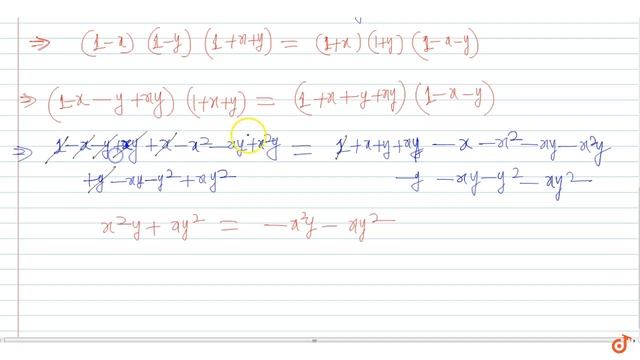 ⇒ (1-x) (1-y) (1+x+y) = (1+x) (1+y) (1-x-y)
⇒ (1-x-y+xy) (1+x+y) = (1+x+y+xy) (1-x-y)
⇒ 1-x-y+xy+x-x²-xy+x²y = 1+x+y+xy-x-x²-xy-x²y
+y-xy-y²+xy² -y-xy-y²-xy²
x²y+xy² = -x²y-xy²